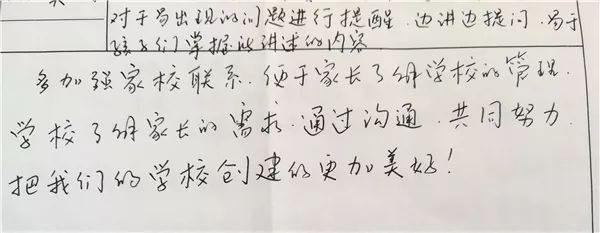 对于易出现的问题进行提醒．边讲边提问．易于
孩子们掌握所讲述的内容
多加强家校联系．便于家长了解学校的管理．
学校了解家长的需求．通过沟通．共同努力．
把我们的学校创建的更加美好！